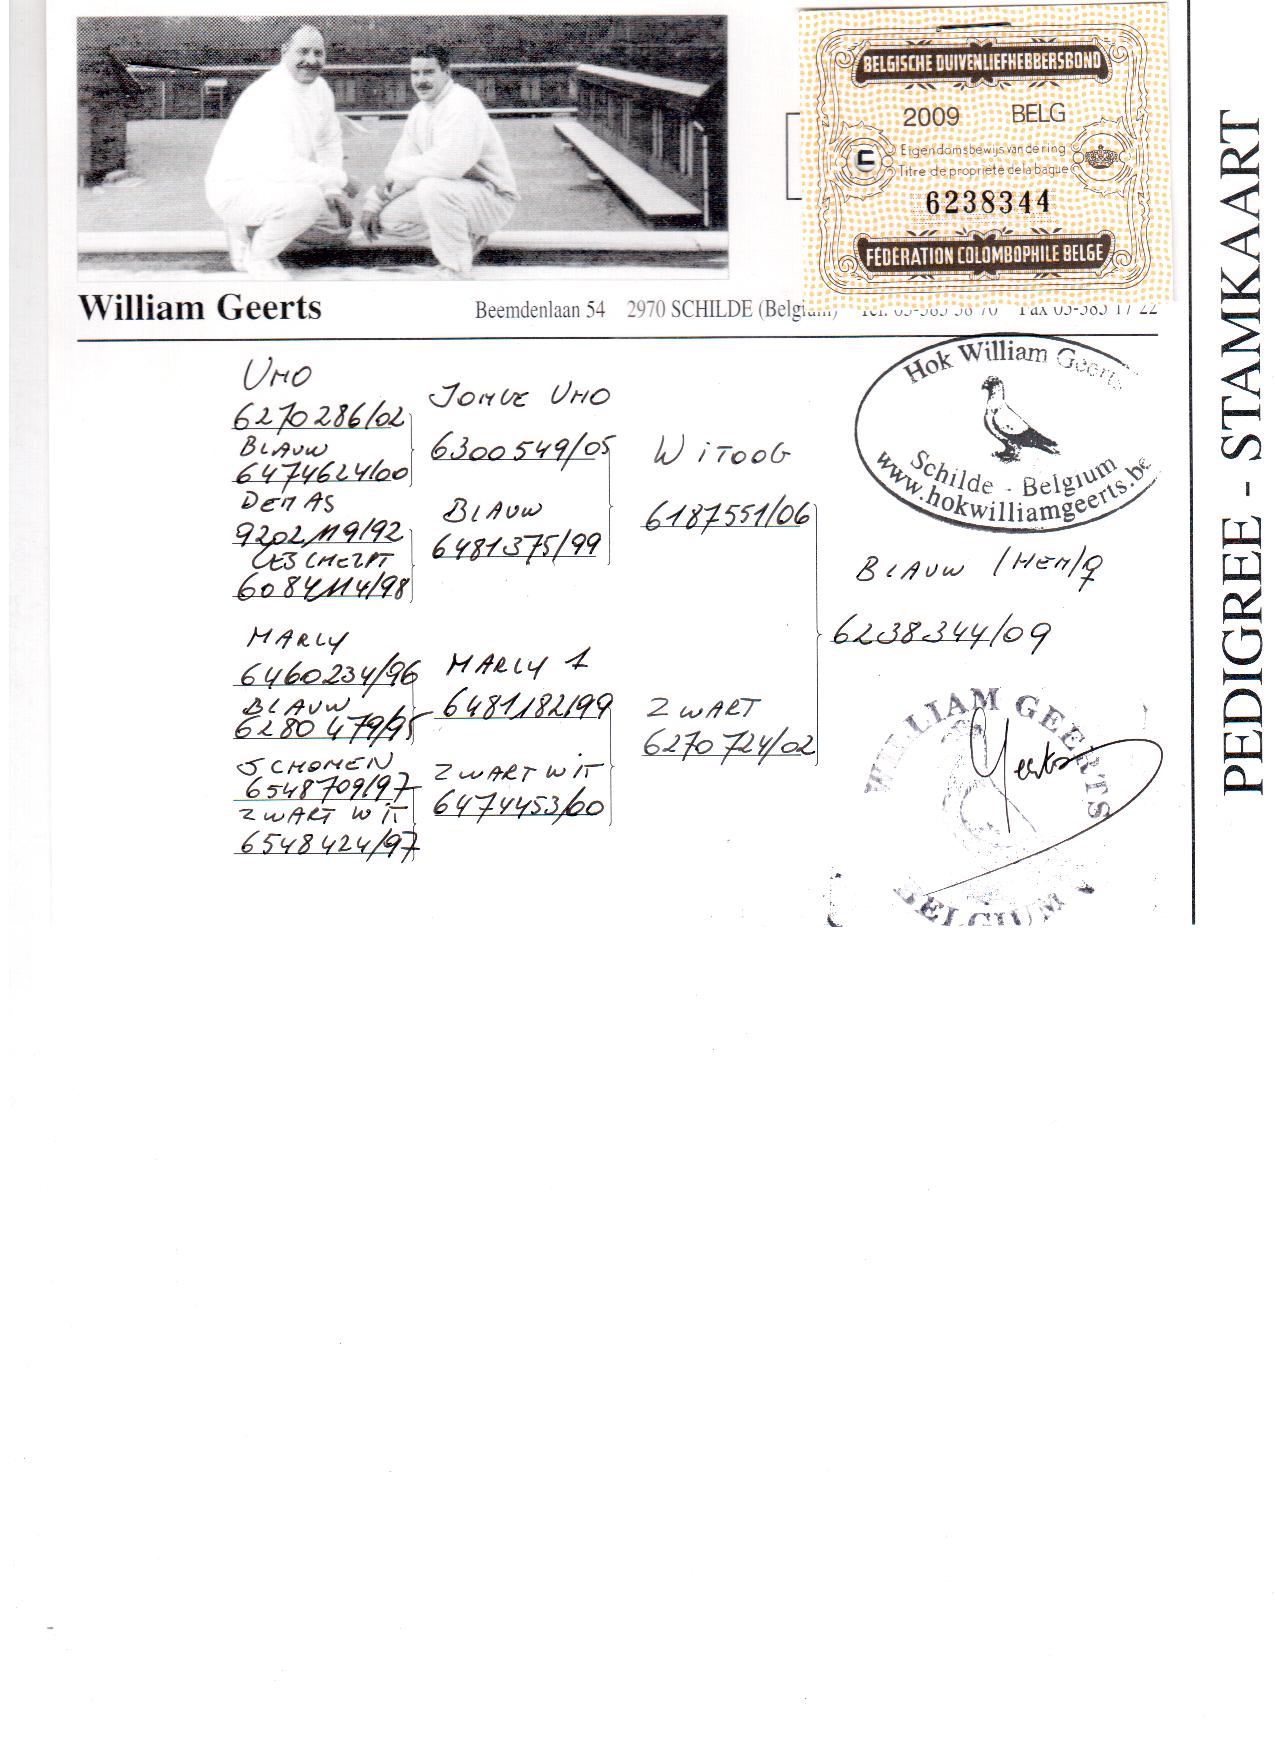 BELGISCHE DUIVENLIEFHEBBERSBOND
2009 BELG
Eigendomsbewijs van de ring
Titre de propriété de la bague
6238344
FÉDÉRATION COLOMBOPHILE BELGE
William Geerts
Beemdenlaan 54 2970 SCHILDE (Belgium) Tel. 03-383 38 70 Fax 03-383 17 22
PEDIGREE - STAMKAART
Hok William Geerts
Schilde - Belgium
www.hokwilliamgeerts.be
UNO
6270286/02
BLAUW
6474624/00
DEN AS
9202119/92
GESCHELPT
6084114/98
MARLY
6460234/96
BLAUW
6280479/95
SCHOMEN
6548709/97
ZWART WIT
6548424/97
JONGE UNO
6300549/05
BLAUW
6481375/99
MARLY 1
6481182/99
ZWART WIT
6474453/00
WITOOG
6187551/06
ZWART
6270724/02
BLAUW /HEN/♀
6238344/09
WILLIAM GEERTS
Geerts
BELGIUM